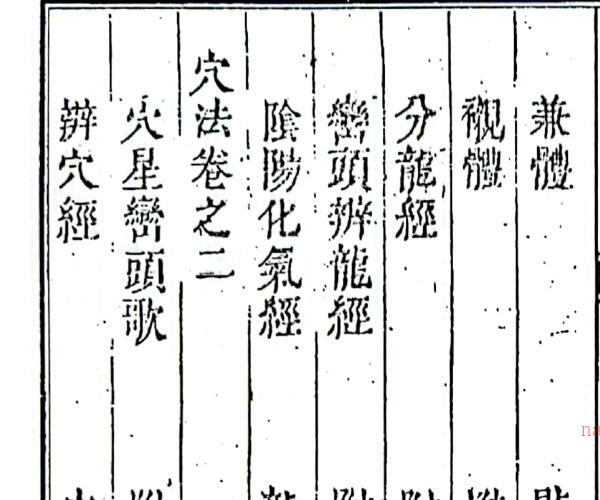 兼體
覌體
分龍經
巒頭辨龍經
陰陽化氣經
穴法卷之二
穴星巒頭歌
辨穴經
na